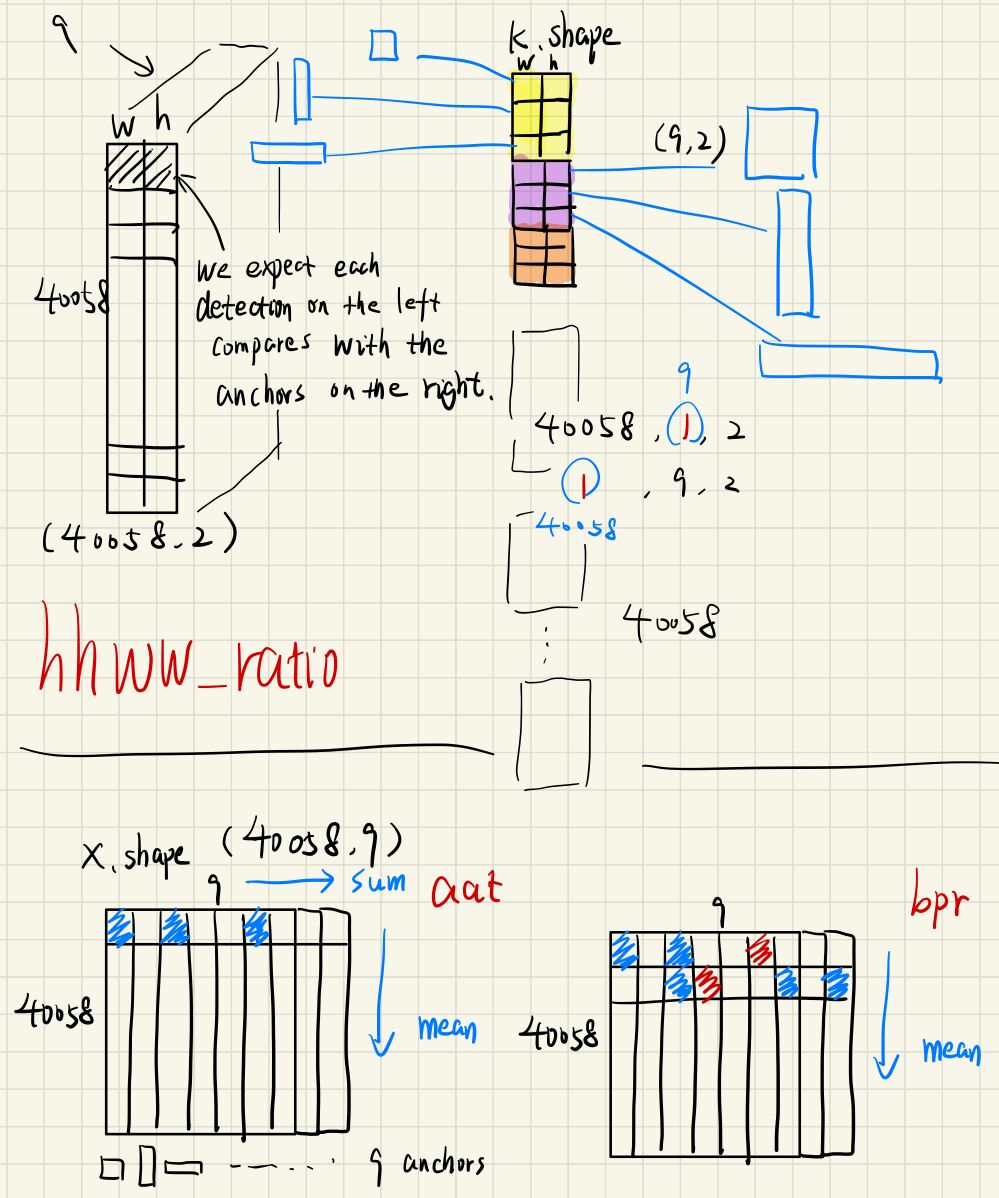 9
w h
40058
we expect each
detection on the left
compares with the
anchors on the right.
(40058, 2)
k.shape
w h
(9,2)
9
40058, 1, 2
1, 9, 2
40058
40058
hhww_ratio
x.shape (40058, 9)
9 sum aat
40058
mean
9 anchors
bpr
9
40058
mean